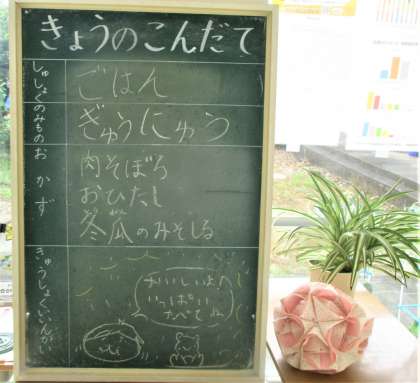 きょうのこんだて
しゅしょく
ごはん
のみもの
ぎゅうにゅう
おかず
肉そぼろ
おひたし
冬瓜のみそしる
きゅうしょくいいんかい
おいしいよ!
いっぱい
たべてね